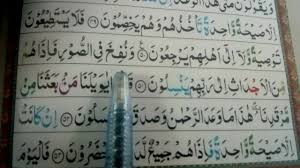 وَيَقُولُونَ مَتٰى هٰذَا الْوَعْدُ
اِلَّا صَيْحَةً وَّاحِدَةً تَاْخُذُهُمْ وَهُمْ يَخِصِّمُوْنَ ﴿۴۹﴾ فَلَا يَسْتَطِيْعُوْنَ
تَوْصِيَةً وَّلَآ اِلٰٓى اَهْلِهِمْ يَرْجِعُوْنَ ﴿۵۰﴾ وَنُفِخَ فِي الصُّوْرِ فَاِذَا هُمْ
مِّنَ الْاَجْدَاثِ اِلٰى رَبِّهِمْ يَنْسِلُوْنَ ﴿۵۱﴾ قَالُوْا يٰوَيْلَنَا مَنْۢ بَعَثَنَا مِنْ
مَّرْقَدِنَا هٰذَا مَا وَعَدَ الرَّحْمٰنُ وَصَدَقَ الْمُرْسَلُوْنَ ﴿۵۲﴾ اِنْ كَانَتْ
اِلَّا صَيْحَةً وَّاحِدَةً فَاِذَا هُمْ جَمِيْعٌ لَّدَيْنَا مُحْضَرُوْنَ ﴿۵۳﴾ فَالْيَوْمَ